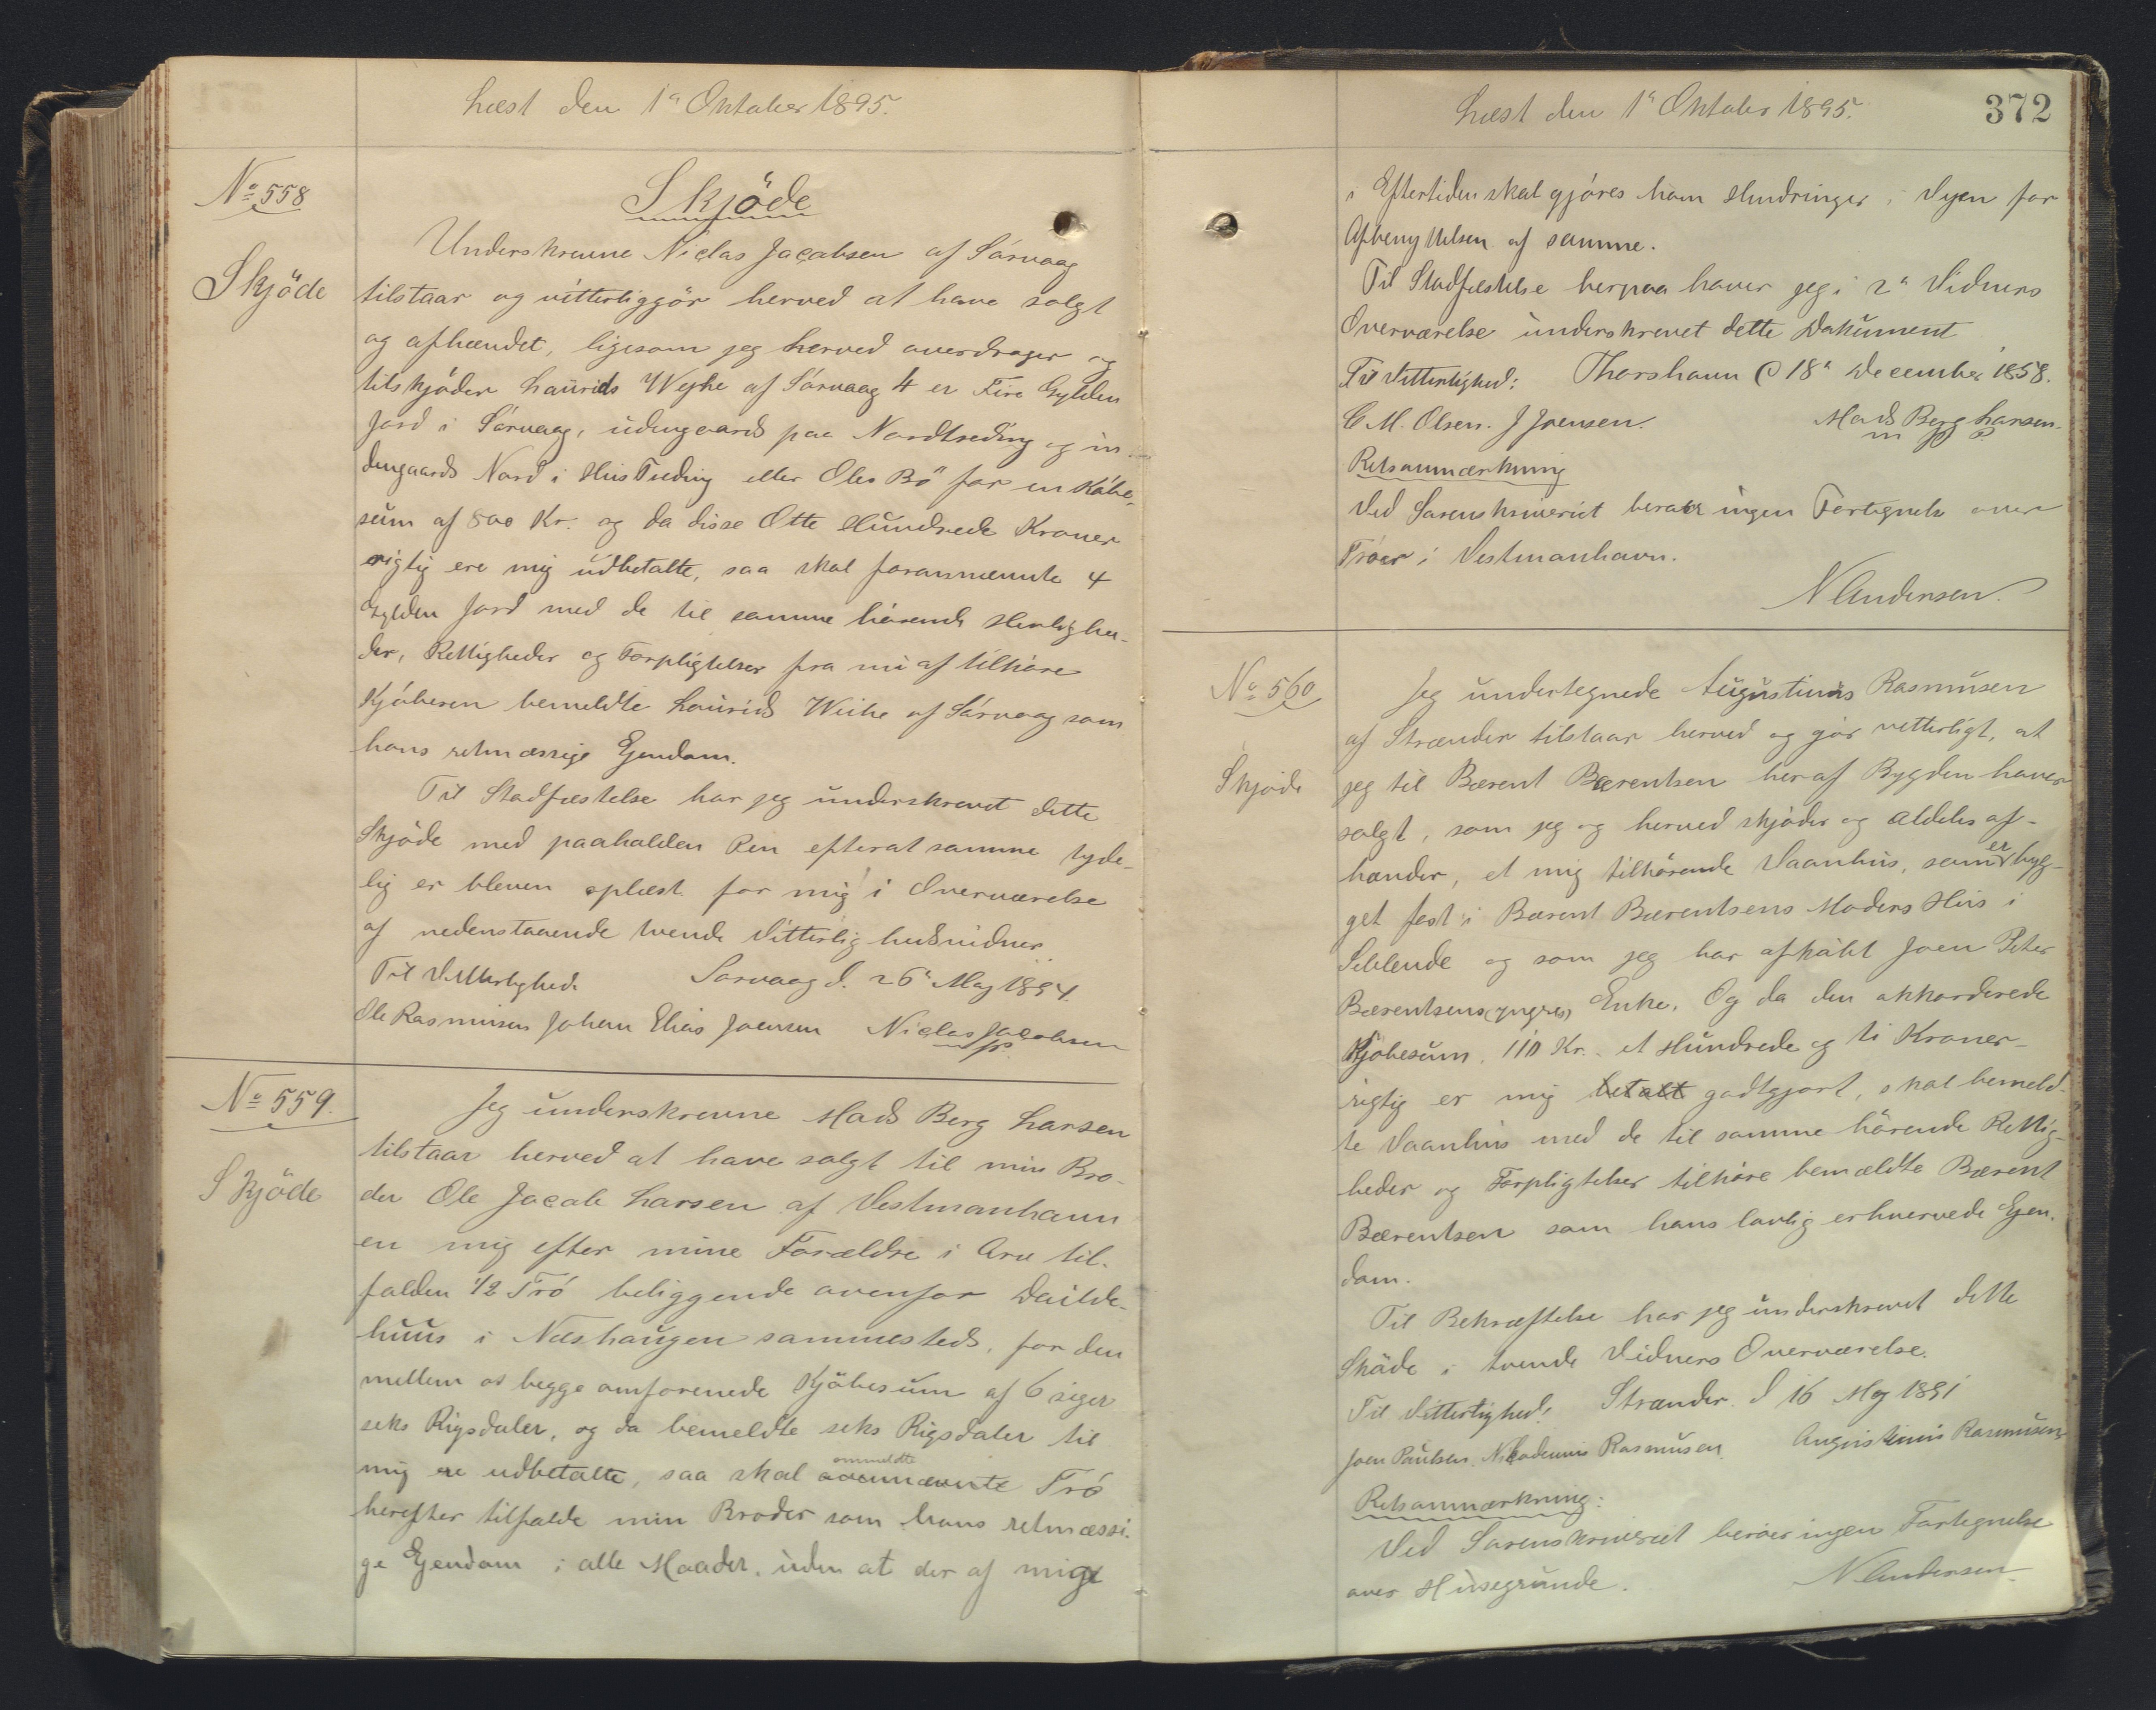 Læst den 1ᵃ Oktober 1895.
№ 558
Skjöde
Skjöde
Underskrevne Niclas Jacobsen af Sórvaag
tilstaar og vitterliggör herved at have solgt
og afhændet, ligesom jeg herved overdrager og
tilskjóder Laurids Wejhe af Sórvaag 4 er Fire Gylden
Jord i Sórvaag, udengaards paa Nordtreding og in-
dengaards Nord i Huus Treding eller Oles Bö for en Köbe-
sum af 800 Kr. og da disse Otte Hundrede Kroner
rigtig ere mig udbetalte, saa skal forannævnte 4
Gylden Jord med de til samme hórende Herlighe-
der, Rettigheder og Forpligtelser fra nu af tilhóre
Kjóberen bemeldte Laurids Weihe af Sórvaag som
hans retmæssige Ejendom.
Til Stadfæstelse har jeg underskrevet dette
Skjöde med paaholden Pen efterat samme tyde-
lig er bleven oplæst for mig i Overværelse
af nedenstaaende tvende Vitterlighedsvidner.
Til Vitterlighed. Sorvaag d. 26ᵃ Maj 1894.
Ole Rasmusen Johan Elias Joensen Niclas Jacobsen
m. f. P.
№ 559.
Skjöde
Jeg underskrevne Mads Berg Larsen
tilstaar herved at have solgt til min Bro-
der Ole Jacob Larsen af Vestmanhavn
en mig efter mine Forældre i Arv til-
falden 1/2 Tró beliggende ovenfor Deilde-
huus i Næshaugen sammesteds, for den
mellem os begge omforenede Kjöbesum af 6 siger
seks Rigsdaler, og da bemeldte seks Rigsdaler til
mig ere udbetalte, saa skal ovennævnte ommeldte Tró
herefter tilfalde min Broder som hans retmæssi-
ge Ejendom i alle Maader, uden at der af mig
Læst den 1ᵃ Oktober 1895.
372
i Eftertiden skal gjöres ham Hindringer i Vejen for
Afbenyttelsen af samme.
Til Stadfæstelse herpaa haver jeg i 2ᵃ Vidners
Overværelse underskrevet dette Dokument
Til Vitterlighed: Thorshavn d 18ᵃ December 1858.
C M. Olsen. J Joensen. Mads Berg Larsen
m f P
Retsanmærkning
Ved Sorenskriveriet beroer ingen Fortegnelse over
Tróer i Vestmanhavn.
N Andersen.
№ 560
Skjöde
Jeg undertegnede Augustinus Rasmusen
af Strænder tilstaar herved og gör vitterligt, at
jeg til Bærent Bærentsen her af Bygden haver
solgt, som jeg og herved skjöder og aldeles af-
hænder, et mig tilhörende Vaanhus, som er byg-
get fast i Bærent Bærentsens Moders Hus i
Selelende og som jeg har afkóbt Joen Peter
Bærentsens (yngres) Enke. Og da den akkorderede
Kjöbesum 110 Kr. - et Hundrede og ti Kroner -
rigtig er mig betalt godtgjort, skal bemeld-
te Vaanhus med de til samme hörende Rettig-
heder og Forpligtelser tilhöre bemældte Bærent
Bærentsen som hans lovlig erhvervede Ejen-
dom.
Til Bekræftelse har jeg underskrevet dette
Sköde i tvende Vidners Overværelse.
Til Vitterlighed! Strænder d 16 Maj 1891
Joen Paulsen. Nikodemus Rasmusen Augustinus Rasmusen
Retsanmærkning:
Ved Sorenskriveriet beroer ingen Fortegnelse
over Husegrunde. N Andersen